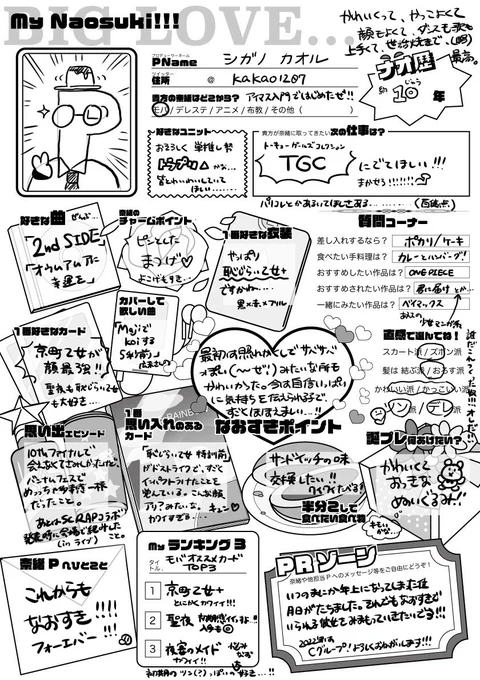 BIG LOVE...
My Naosuki!!!
かわいくって、かっこよくて
顔もよくて、ダンスも歌も
上手くて、世話焼きで、
最高。
プロデューサーネーム
PName
シガノ カオル
ツイッター
住所
@ kakao1207
ナオ歴
約10年
貴方の奈緒はどこから?
アイマス入門ではじめたぜ!!
モバ / デレステ / アニメ / 布教 / その他( )
好きなユニット
おそらく 単推し勢
トラプリ かな…
皆とわいわいしていて
ほしい……
貴方が奈緒に取ってきたい次の仕事は?
トーキョーガールズコレクション
TGC
にでてほしい!!!
まかせろ!!!!!
好きな曲
ぜんぶ
「2nd SIDE」
「オウムアムアに
幸運を」
奈緒の
チャームポイント
ピンとした
まつげ♡
よこげもすき…
1番好きな衣装
やっぱり
恥じらい乙女+
ですかね…
黒×赤×フリル
質問コーナー
差し入れするなら?
ポカリ/ケーキ
食べたい手料理は?
カレーとハンバーグ!
おすすめしたい作品は?
ONE PIECE
おすすめされたい作品は?
君に届けとか…
少女マンガ系
一緒にみたい作品は?
ベイマックス
カバーして
欲しい曲
「Majiで
Koiする
5秒前」
広末さん
1番好きなカード
京町乙女が
顔最強!!
聖夜も恥じらい乙女
も大好き…
最初は照れかくしでサバサバ
っぽい(〜ぜ!)みたいな所も
かわいかった。今は自信いっぱい
に気持ちを伝えられる子で、
ずっとほほえましい…!!
なおすきポイント
直感で選んでね!
スカート派 / ズボン派
髪は 結ぶ派 / おろす派
かわいい派 / かっこいい派
ツン派 / デレ派
思い出エピソード
10thファイナルで
会えなくてさみしかったけど、
バンナムフェスで
めっちゃ多幸感一杯
だったこと。
あとはSCRAPコラボ
発表時に会場で絶叫した
(inライブ) こと。
1番
思い入れのある
カード
「恥じらい乙女 特訓前」
がドストライクで、ずっと
インパクトうけたことを
覚えている。こんなお服
アリ?みたいな、キュン♡
カワイすぎる…
サンドイッチの味
交換したい!!
ワイワイたべる!
半分こして
食べたい食べ物
誕プレ何あげたい?
かわいくて
おっきな
ぬいぐるみ!!
奈緒Pへひとこと
これからも
なおすき!!!!
フォーエバー!!!
Myランキング3
タイトル.
モバオススメカード
TOP3
1
京町乙女+
とにかくカワイイ!!!
2
聖夜
3
夜宴のメイド
カワイイ!!
初期のツン(?)っぽいの好き…!!
PRゾーン
奈緒や他担当Pへのメッセージ等をご自由にどうぞ!
いつのまにか年上になってしまった位
月日がたちました。それでもなおすきで
いられる彼女をみまもっていきたいです!!!
Cグループ!よろしくおねがいします!!!